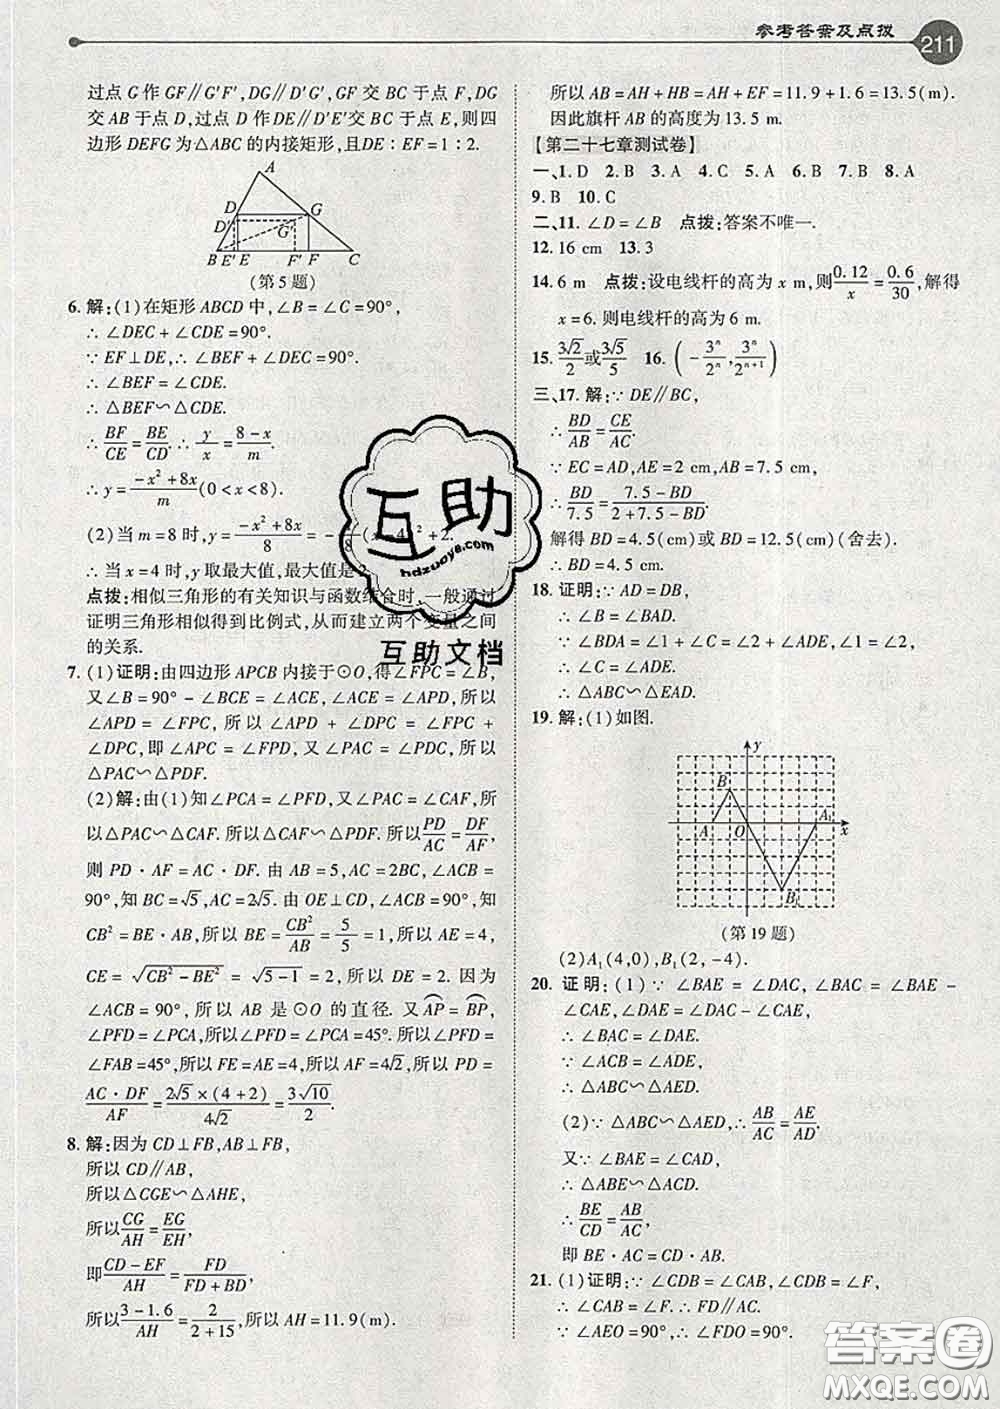 参考答案及点拨
211
过点 G 作 GF∥G′F′,DG∥D′G′,GF 交 BC 于点 F,DG
交 AB 于点 D,过点 D 作 DE∥D′E′交 BC 于点 E,则四
边形 DEFG 为△ABC 的内接矩形,且DE∶EF=1∶2.
A
D G
D′ G′
B E′ E F′ F C
(第 5 题)
6. 解:(1)在矩形 ABCD 中,∠B=∠C=90°,
∴ ∠DEC+∠CDE=90°.
∵ EF⊥DE,∴ ∠BEF+∠DEC=90°.
∴ ∠BEF=∠CDE.
∴ △BEF∽△CDE.
∴ BF/CE=BE/CD. ∴ y/x=(8-x)/m.
∴ y=(-x²+8x)/m(0<x<8).
(2)当 m=8 时,y=(-x²+8x)/8=-1/8(x-4)²+2.
∴ 当 x=4 时,y 取最大值,最大值是2
点拨:相似三角形的有关知识与函数结合时,一般通过
证明三角形相似得到比例式,从而建立两个变量之间
的关系.
7. (1)证明:由四边形 APCB 内接于⊙O,得∠FPC=∠B,
又∠B=90°-∠BCE=∠ACE,∠ACE=∠APD,所以
∠APD=∠FPC,所以∠APD+∠DPC=∠FPC+
∠DPC,即∠APC=∠FPD,又∠PAC=∠PDC,所以
△PAC∽△PDF.
(2)解:由(1)知∠PCA=∠PFD,又∠PAC=∠CAF,所
以△PAC∽△CAF. 所以△CAF∽△PDF. 所以PD/AC=DF/AF,
则 PD·AF=AC·DF. 由 AB=5,AC=2BC,∠ACB=
90°,知 BC=√5,AC=2√5. 由 OE⊥CD,∠ACB=90°,知
CB²=BE·AB,所以 BE=CB²/AB=5/5=1,所以 AE=4,
CE=√(CB²-BE²)=√(5-1)=2,所以 DE=2. 因为
∠ACB=90°,所以 AB 是⊙O 的直径. 又A͡P=B͡P,
∠PFD=∠PCA,所以∠PFD=∠PCA=45°. 所以∠PFD=
∠FAB=45°,所以 FE=AE=4,所以 AF=4√2,所以 PD=
AC·DF/AF=2√5×(4+2)/4√2=3√10/2.
8. 解:因为 CD⊥FB,AB⊥FB,
所以 CD∥AB,
所以△CGE∽△AHE,
所以CG/AH=EG/EH,
即(CD-EF)/AH=FD/(FD+BD),
所以(3-1.6)/AH=2/(2+15),所以 AH=11.9(m).
所以 AB=AH+HB=AH+EF=11.9+1.6=13.5(m).
因此旗杆 AB 的高度为 13.5 m.
【第二十七章测试卷】
一、1. D 2. B 3. A 4. C 5. A 6. D 7. B 8. A
9. B 10. C
二、11. ∠D=∠B 点拨:答案不唯一.
12. 16 cm 13. 3
14. 6 m 点拨:设电线杆的高为 x m,则0.12/x=0.6/30,解得
x=6. 则电线杆的高为 6 m.
15. 3√2/2或3√5/5 16. (-3ⁿ/2ⁿ,3ⁿ/2ⁿ⁺¹)
三、17. 解:∵ DE∥BC,
∴ BD/AB=CE/AC.
∵ EC=AD,AE=2 cm,AB=7.5 cm,
∴ BD/7.5=(7.5-BD)/(2+7.5-BD).
解得 BD=4.5(cm)或 BD=12.5(cm)(舍去).
∴ BD=4.5 cm.
18. 证明:∵ AD=DB,
∴ ∠B=∠BAD.
∵ ∠BDA=∠1+∠C=∠2+∠ADE,∠1=∠2,
∴ ∠C=∠ADE.
∴ △ABC∽△EAD.
19. 解:(1)如图.
y
B
A O A₁ x
B₁
(第 19 题)
(2)A₁(4,0),B₁(2,-4).
20. 证明:(1)∵ ∠BAE=∠DAC,∠BAC=∠BAE-
∠CAE,∠DAE=∠DAC-∠CAE,
∴ ∠BAC=∠DAE.
∵ ∠ACB=∠ADE,
∴ △ABC∽△AED.
(2)∵ △ABC∽△AED,∴ AB/AC=AE/AD.
又∵ ∠BAE=∠CAD,
∴ △ABE∽△ACD.
∴ BE/CD=AB/AC,
即 BE·AC=CD·AB.
21. (1)证明:∵ ∠CDB=∠CAB,∠CDB=∠F,
∴ ∠CAB=∠F. ∴ FD∥AC.
∵ ∠AEO=90°,∴ ∠FDO=90°.
互助
hdzuoye.com
互助文档
答案卷
MXQE.COM